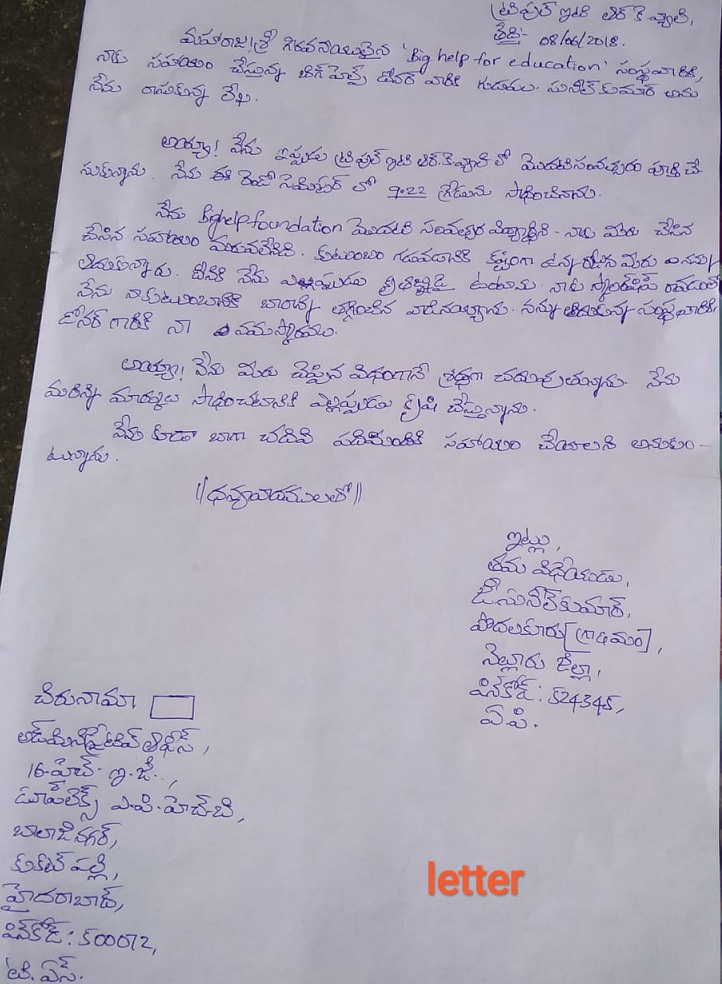 ట్రిపుల్ ఇటి ఆర్.కె.వ్యాలి,
తేది:- 08/06/2018.
మహారాజశ్రీ గౌరవనీయులైన 'Big help for education' సంస్థవారికి,
నాకు సహాయం చేస్తున్న బిగ్ హెల్ప్ డోనర్ వారికి సునీల్ కుమార్ అను
నేను రాసుకున్న లేఖ.
అయ్యా! నేను ఇప్పుడు ట్రిపుల్ ఇటి ఆర్.కె.వ్యాలి లో మొదటి సంవత్సరం పూర్తి చే
సుకున్నాను. నేను ఈ రెండో సెమిస్టర్ లో 9.22 గ్రేడును సాధించినాను.
నేను Bighelpfoundation మొదటి సంవత్సర విద్యార్థిని. నాకు మీరు చేసిన
చేసిన సహాయం మరువలేనిది. కుటుంబం గడవడానికి కష్టంగా ఉన్న రోజున మీరు నన్ను
ఆదుకున్నారు. దీనికి నేను ఎల్లప్పుడు కృతజ్ఞుడై ఉంటాను. నాకు స్కాలర్షిప్ రావడంతో
నేను నా కుటుంబానికి బారాన్ని తగ్గించిన వాడినయ్యాను. నన్ను ఆదుకున్న సంస్థవారికి,
డోనర్ గారికి నా నమస్కారములు.
అయ్యా! నేను మీరు చెప్పిన విధంగానే శ్రద్ధగా చదువుతున్నాను. నేను
మరిన్ని మార్కులు సాధించటానికి ఎల్లప్పుడు కృషి చేస్తున్నాను.
నేను కూడా బాగా చదివి పదిమందికి సహాయం చేయాలని అనుకుం-
టున్నాను.
//ధన్యవాదములతో//
ఇట్లు,
తమ విధేయుడు,
జి.సునీల్ కుమార్,
పొదలకూరు[గ్రామం],
నెల్లూరు జిల్లా,
పిన్ కోడ్: 524345,
ఏ.పి.
చిరునామా
అడ్మినిస్ట్రేటివ్ ఆఫీస్,
16-హెచ్. ఇ.జీ.,
డూప్లెక్స్ ఎ.పి.హెచ్.బి,
బాలాజీనగర్,
కుకట్ పల్లి,
హైదరాబాద్,
పిన్ కోడ్: 500072,
టి.ఎస్.
letter